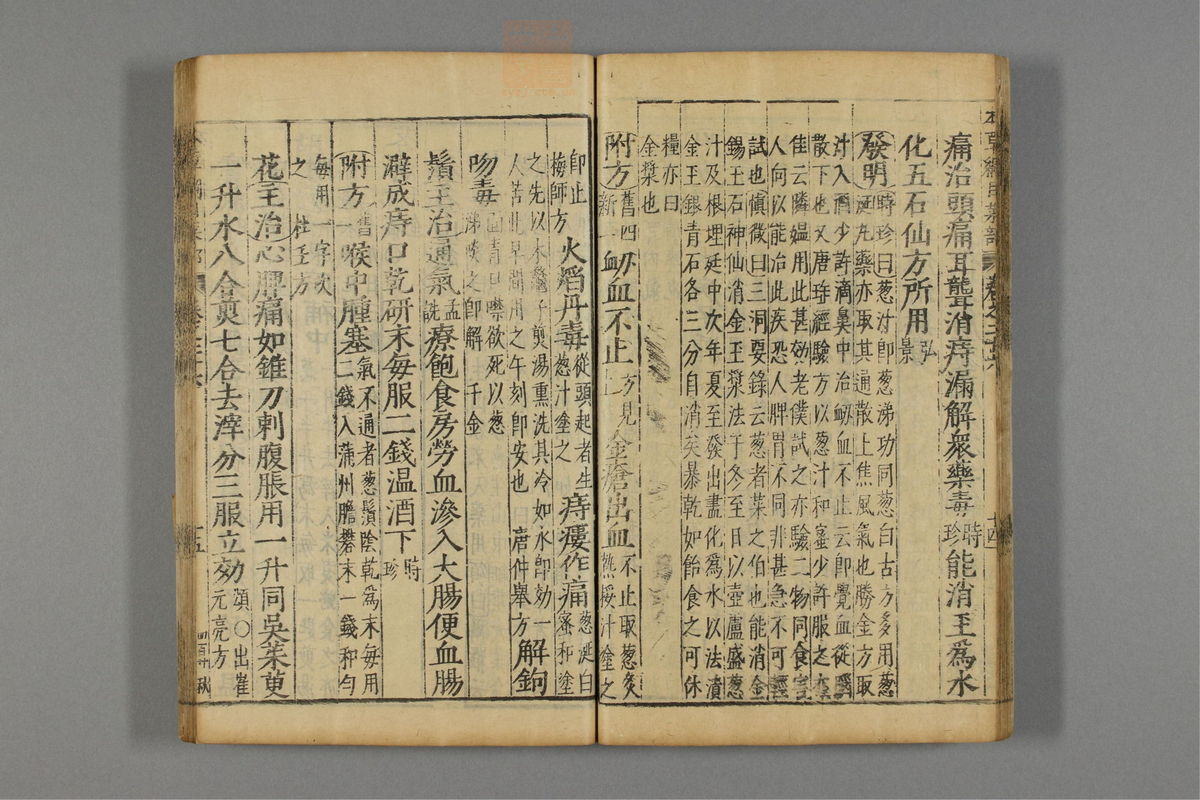 痛治頭痛耳聾消痔漏解衆藥毒時珍能消玉爲水
化五石仙方所用弘景
發明時珍曰葱汁卽葱涕功同葱白古方多用葱
涎丸藥亦取其通散上焦風氣也勝金方取
汁入酒少許滴鼻中治衂血不止云卽覺血從腦
散下也又唐瑶經驗方以葱汁和蜜少許服之亦
佳云隣媪用此甚效老僕試之亦驗二物同食害
人向以能治此疾恐人脾胃不同非甚急不可輕
試也愼微曰三洞要錄云葱者菜之伯也能消金
錫玉石神仙消金玉漿法于冬至日以壺盧盛葱
汁及根埋庭中次年夏至發出盡化爲水以法漬
金玉銀青石各三分自消矣暴乾如飴食之可休
糧亦曰
金漿也
附方舊四新一衂血不止方見上金瘡出血不止取葱炙
熱挼汁塗之
卽止
梅師方火焰丹毒從頭起者生
葱汁塗之痔瘻作痛葱涎白
蜜和塗
之先以木鱉子煎湯熏洗其冷如水卽效一
人苦此早間用之午刻卽安也唐仲舉方解鉤
吻毒面青口噤欲死以葱
涕啖之卽解千金
鬚主治通氣孟詵療飽食房勞血滲入大腸便血腸
澼成痔日乾研末每服二錢温酒下時珍
附方舊一喉中腫塞氣不通者葱鬚陰乾爲末每用
二錢入蒲州膽礬末一錢和勻
每用一字吹
之杜壬方
花主治心脾痛如錐刀刺腹脹用一升同吳茱萸
一升水八合煎七合去滓分三服立效頌〇出崔
元亮方
十四
十五